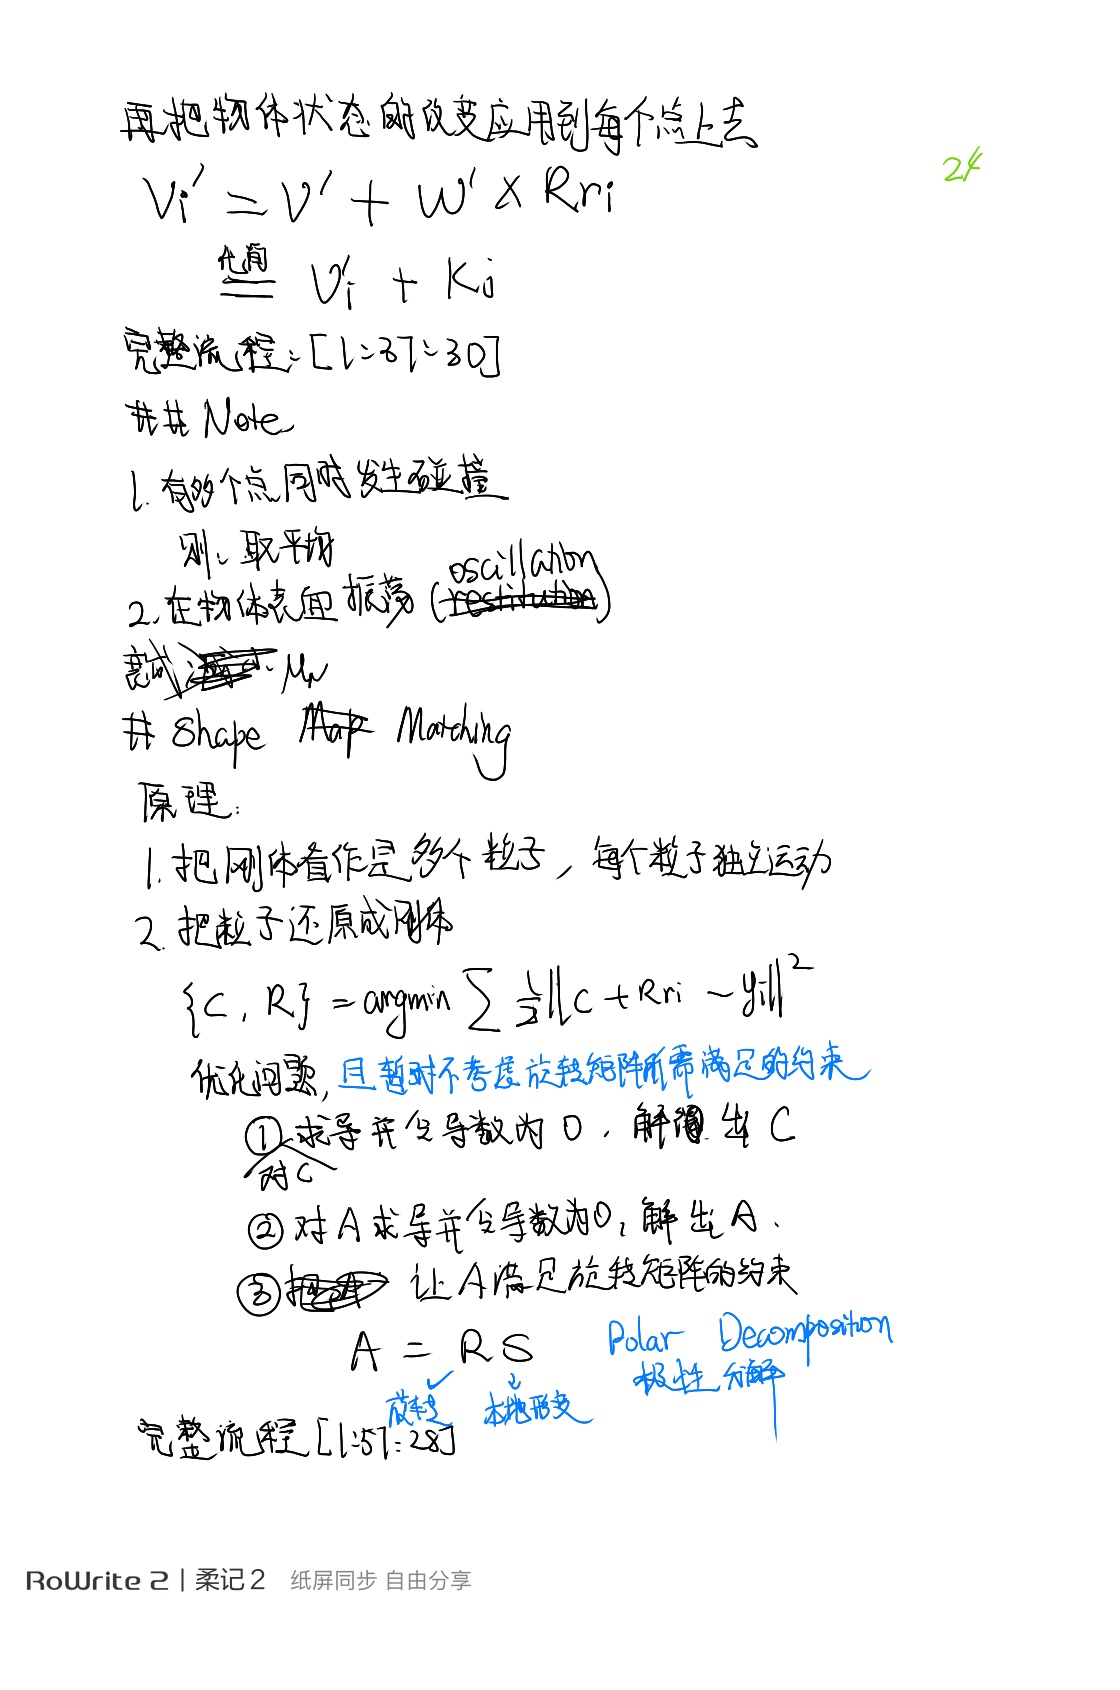 再把物体状态的改变应用到每个点上去
24
Vi' = V' + W' × Rri
化简
= Vi' + Ki
完整流程:[1:37:30]
## Note
1. 有多个点同时发生碰撞
则:取平均
2. 在物体表面振荡(oscillation)
μN
# Shape Matching
原理:
1. 把刚体看作是多个粒子,每个粒子独立运动
2. 把粒子还原成刚体
{C, R} = argmin ∑ ½||C + Rri - yi||²
优化问题,且暂时不考虑旋转矩阵所需满足的约束
① 求导并令导数为0,解得出C
对C
② 对A求导并令导数为0,解出A.
③ 让A满足旋转矩阵的约束
A = RS Polar Decomposition
极性分解
旋转 本地形变
完整流程[1:57:28]
RoWrite 2 | 柔记 2 纸屏同步 自由分享